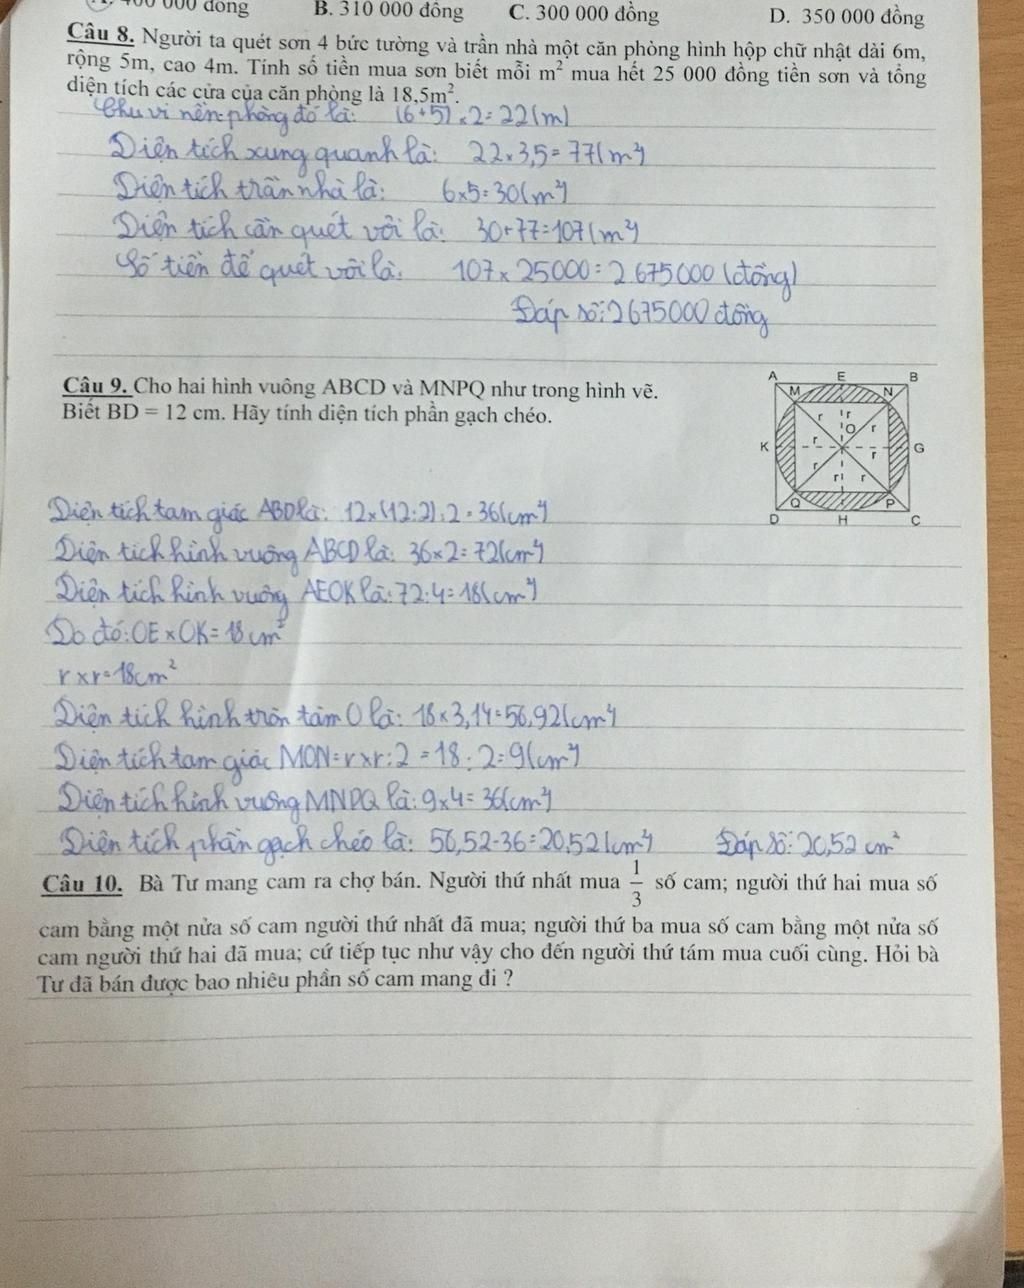 400 000 đồng B. 310 000 đồng C. 300 000 đồng D. 350 000 đồng
Câu 8. Người ta quét sơn 4 bức tường và trần nhà một căn phòng hình hộp chữ nhật dài 6m,
rộng 5m, cao 4m. Tính số tiền mua sơn biết mỗi m² mua hết 25 000 đồng tiền sơn và tổng
diện tích các cửa của căn phòng là 18,5m².
Chu vi nền phòng đó là: (6+5)×2=22(m)
Diện tích xung quanh là: 22×3,5=77(m²)
Diện tích trần nhà là: 6×5=30(m²)
Diện tích cần quét vôi là: 30+77=107(m²)
Số tiền để quét vôi là: 107×25000=2675000(đồng)
Đáp số: 2675000 đồng
Câu 9. Cho hai hình vuông ABCD và MNPQ như trong hình vẽ.
Biết BD = 12 cm. Hãy tính diện tích phần gạch chéo.
A E B
M N
r r
O r
K r r G
r r r
Q P
D H C
Diện tích tam giác ABD là: 12×(12:2):2=36(cm²)
Diện tích hình vuông ABCD là: 36×2=72(cm²)
Diện tích hình vuông AEOK là: 72:4=18(cm²)
Do đó: OE×OK=18cm²
r×r=18cm²
Diện tích hình tròn tâm O là: 18×3,14=56,92(cm²)
Diện tích tam giác MON=r×r:2=18:2=9(cm²)
Diện tích hình vuông MNPQ là: 9×4=36(cm²)
Diện tích phần gạch chéo là: 56,52-36=20,52(cm²) Đáp số: 20,52 cm²
Câu 10. Bà Tư mang cam ra chợ bán. Người thứ nhất mua 1/3 số cam; người thứ hai mua số
cam bằng một nửa số cam người thứ nhất đã mua; người thứ ba mua số cam bằng một nửa số
cam người thứ hai đã mua; cứ tiếp tục như vậy cho đến người thứ tám mua cuối cùng. Hỏi bà
Tư đã bán được bao nhiêu phần số cam mang đi ?